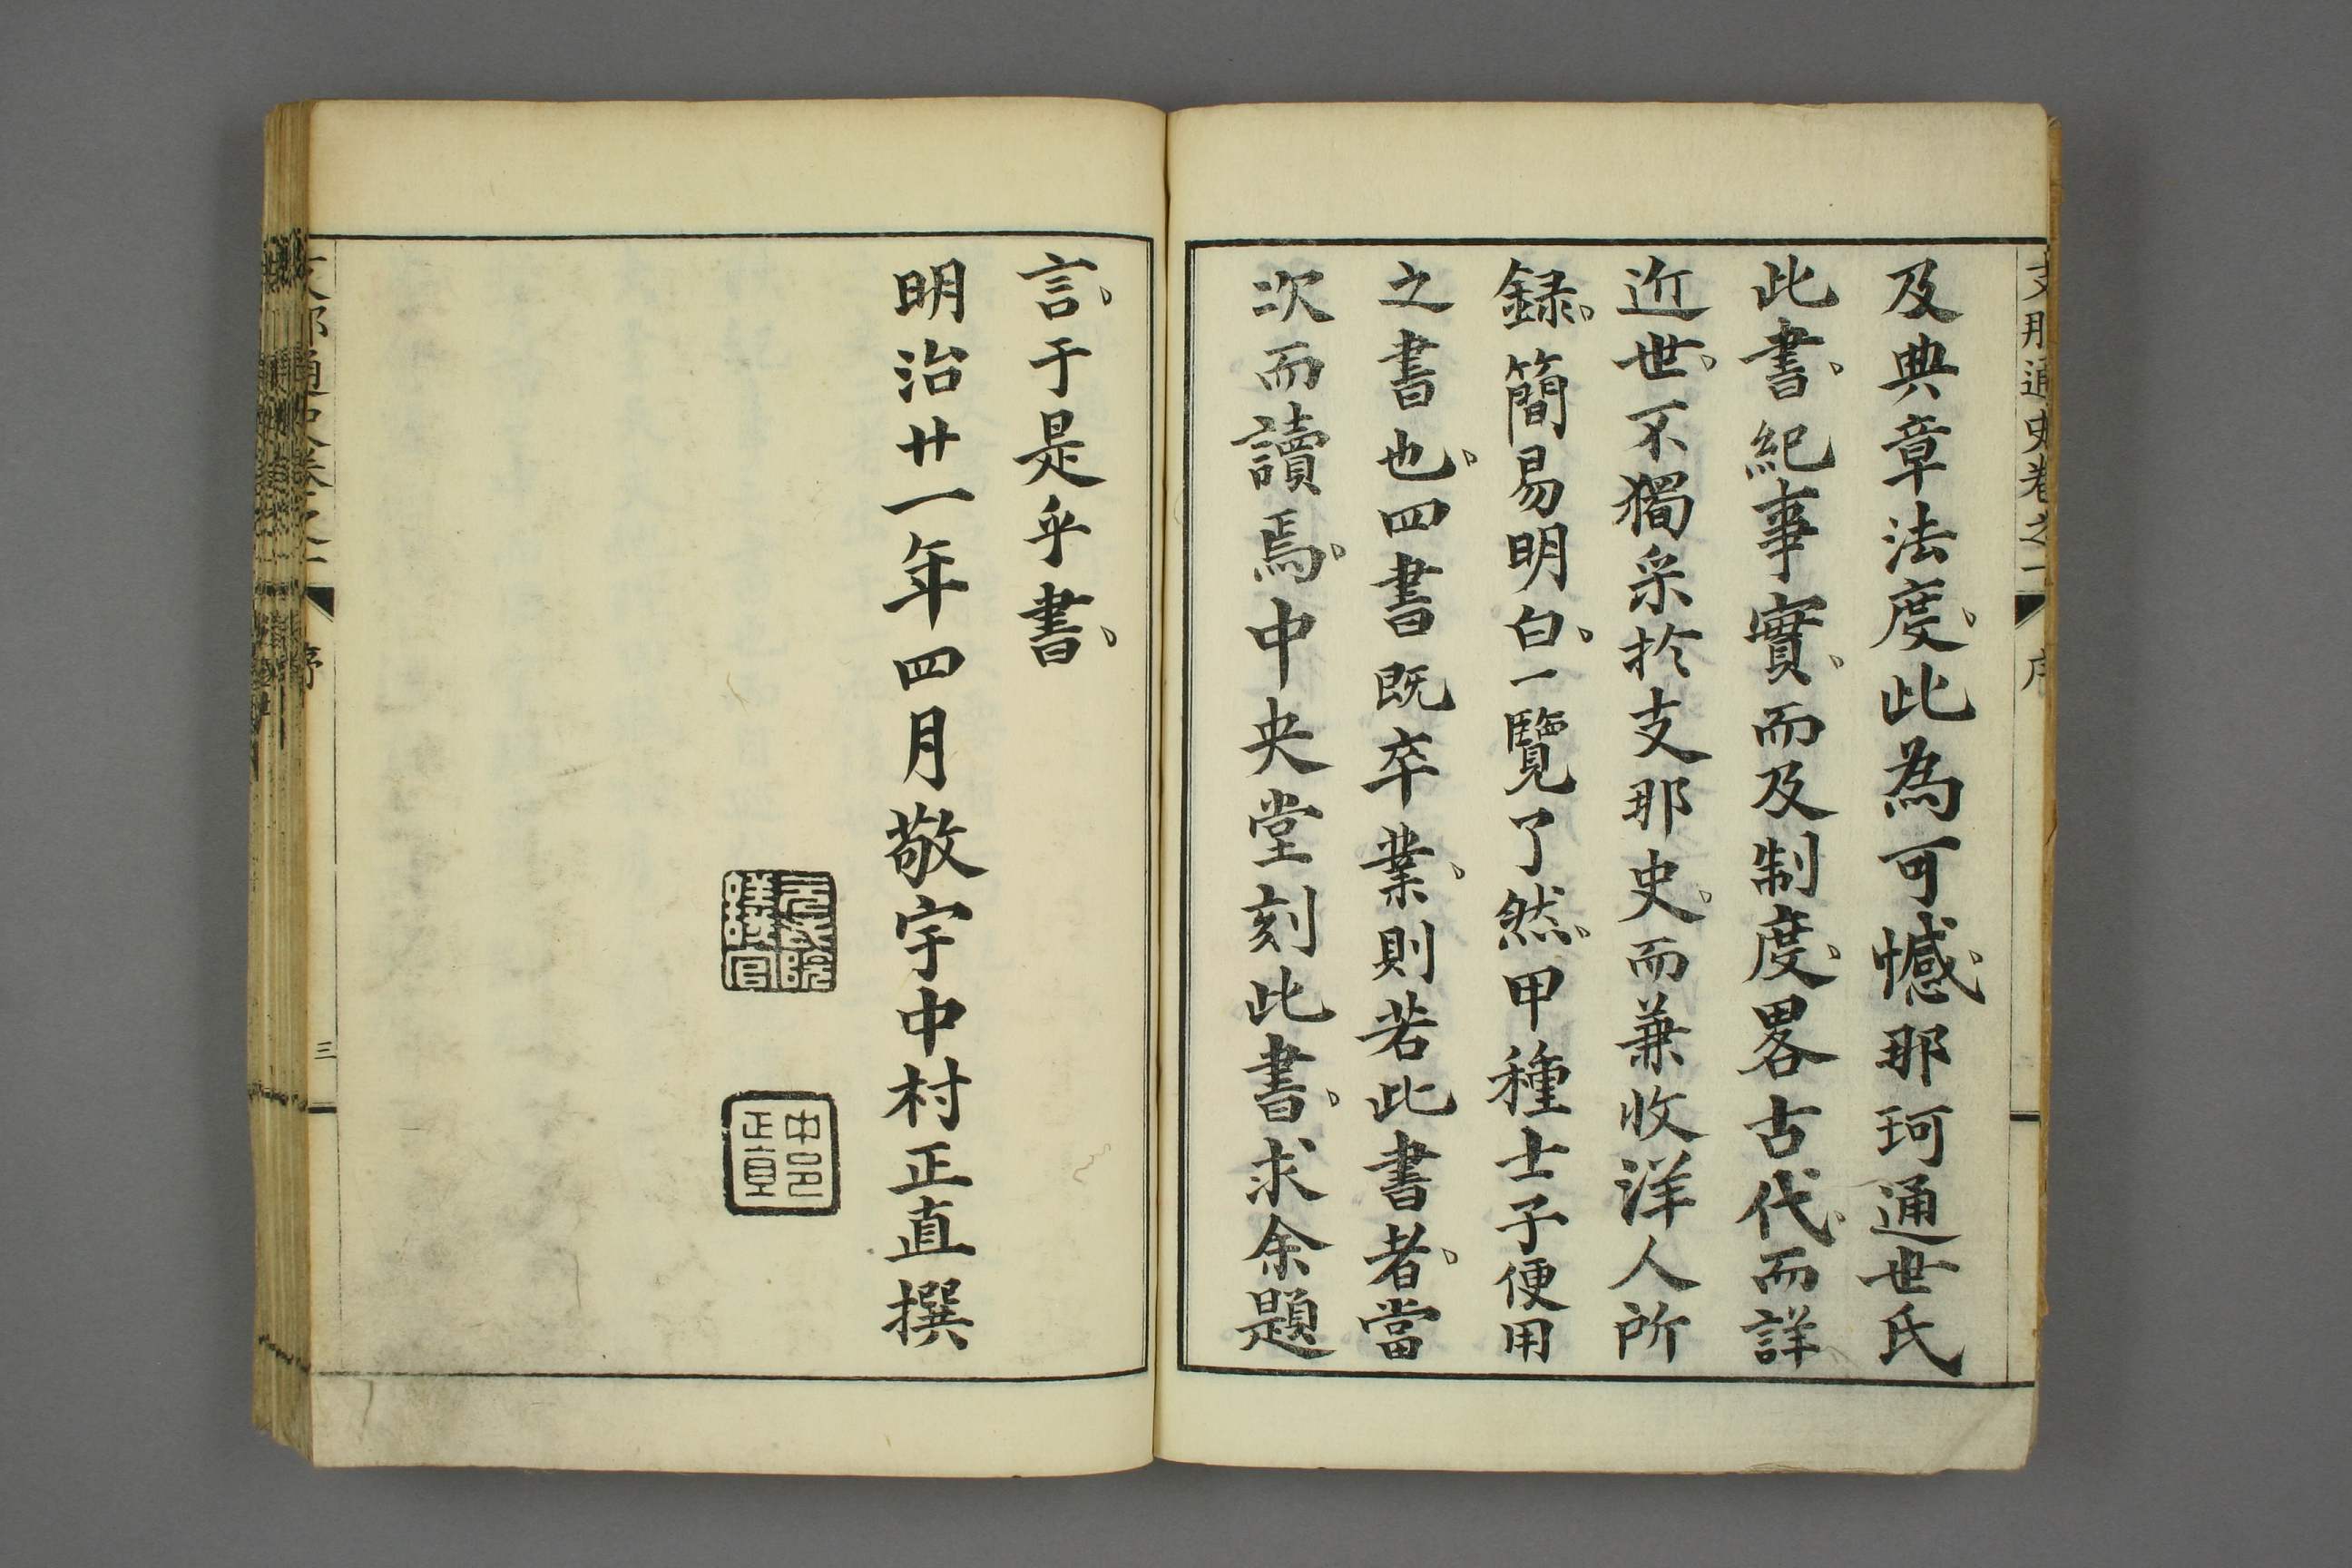 支那通史卷之一
序
及典章法度、此為可憾、那珂通世氏
此書、紀事實、而及制度、畧古代、而詳
近世、不獨采於支那史、而兼收洋人所
録、簡易明白、一覽了然、甲種士子便用
之書也、四書既卒業、則若此書者、當
次而讀焉、中央堂刻此書、求余題
言、于是乎書、
明治廿一年四月敬宇中村正直撰
元老院
議官
中邨
正直
支那通史卷之一
序
三